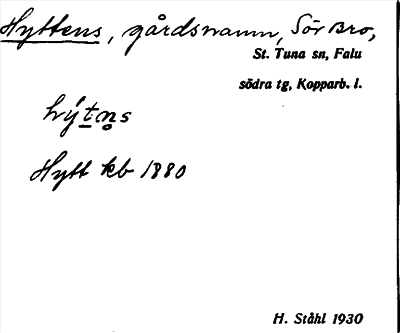 Hyttens, gårdsnamn, Sör Bro,
St. Tuna sn, Falu
södra tg, Kopparb. l.
hýtn̥s
Hytt kb 1880
H. Ståhl 1930